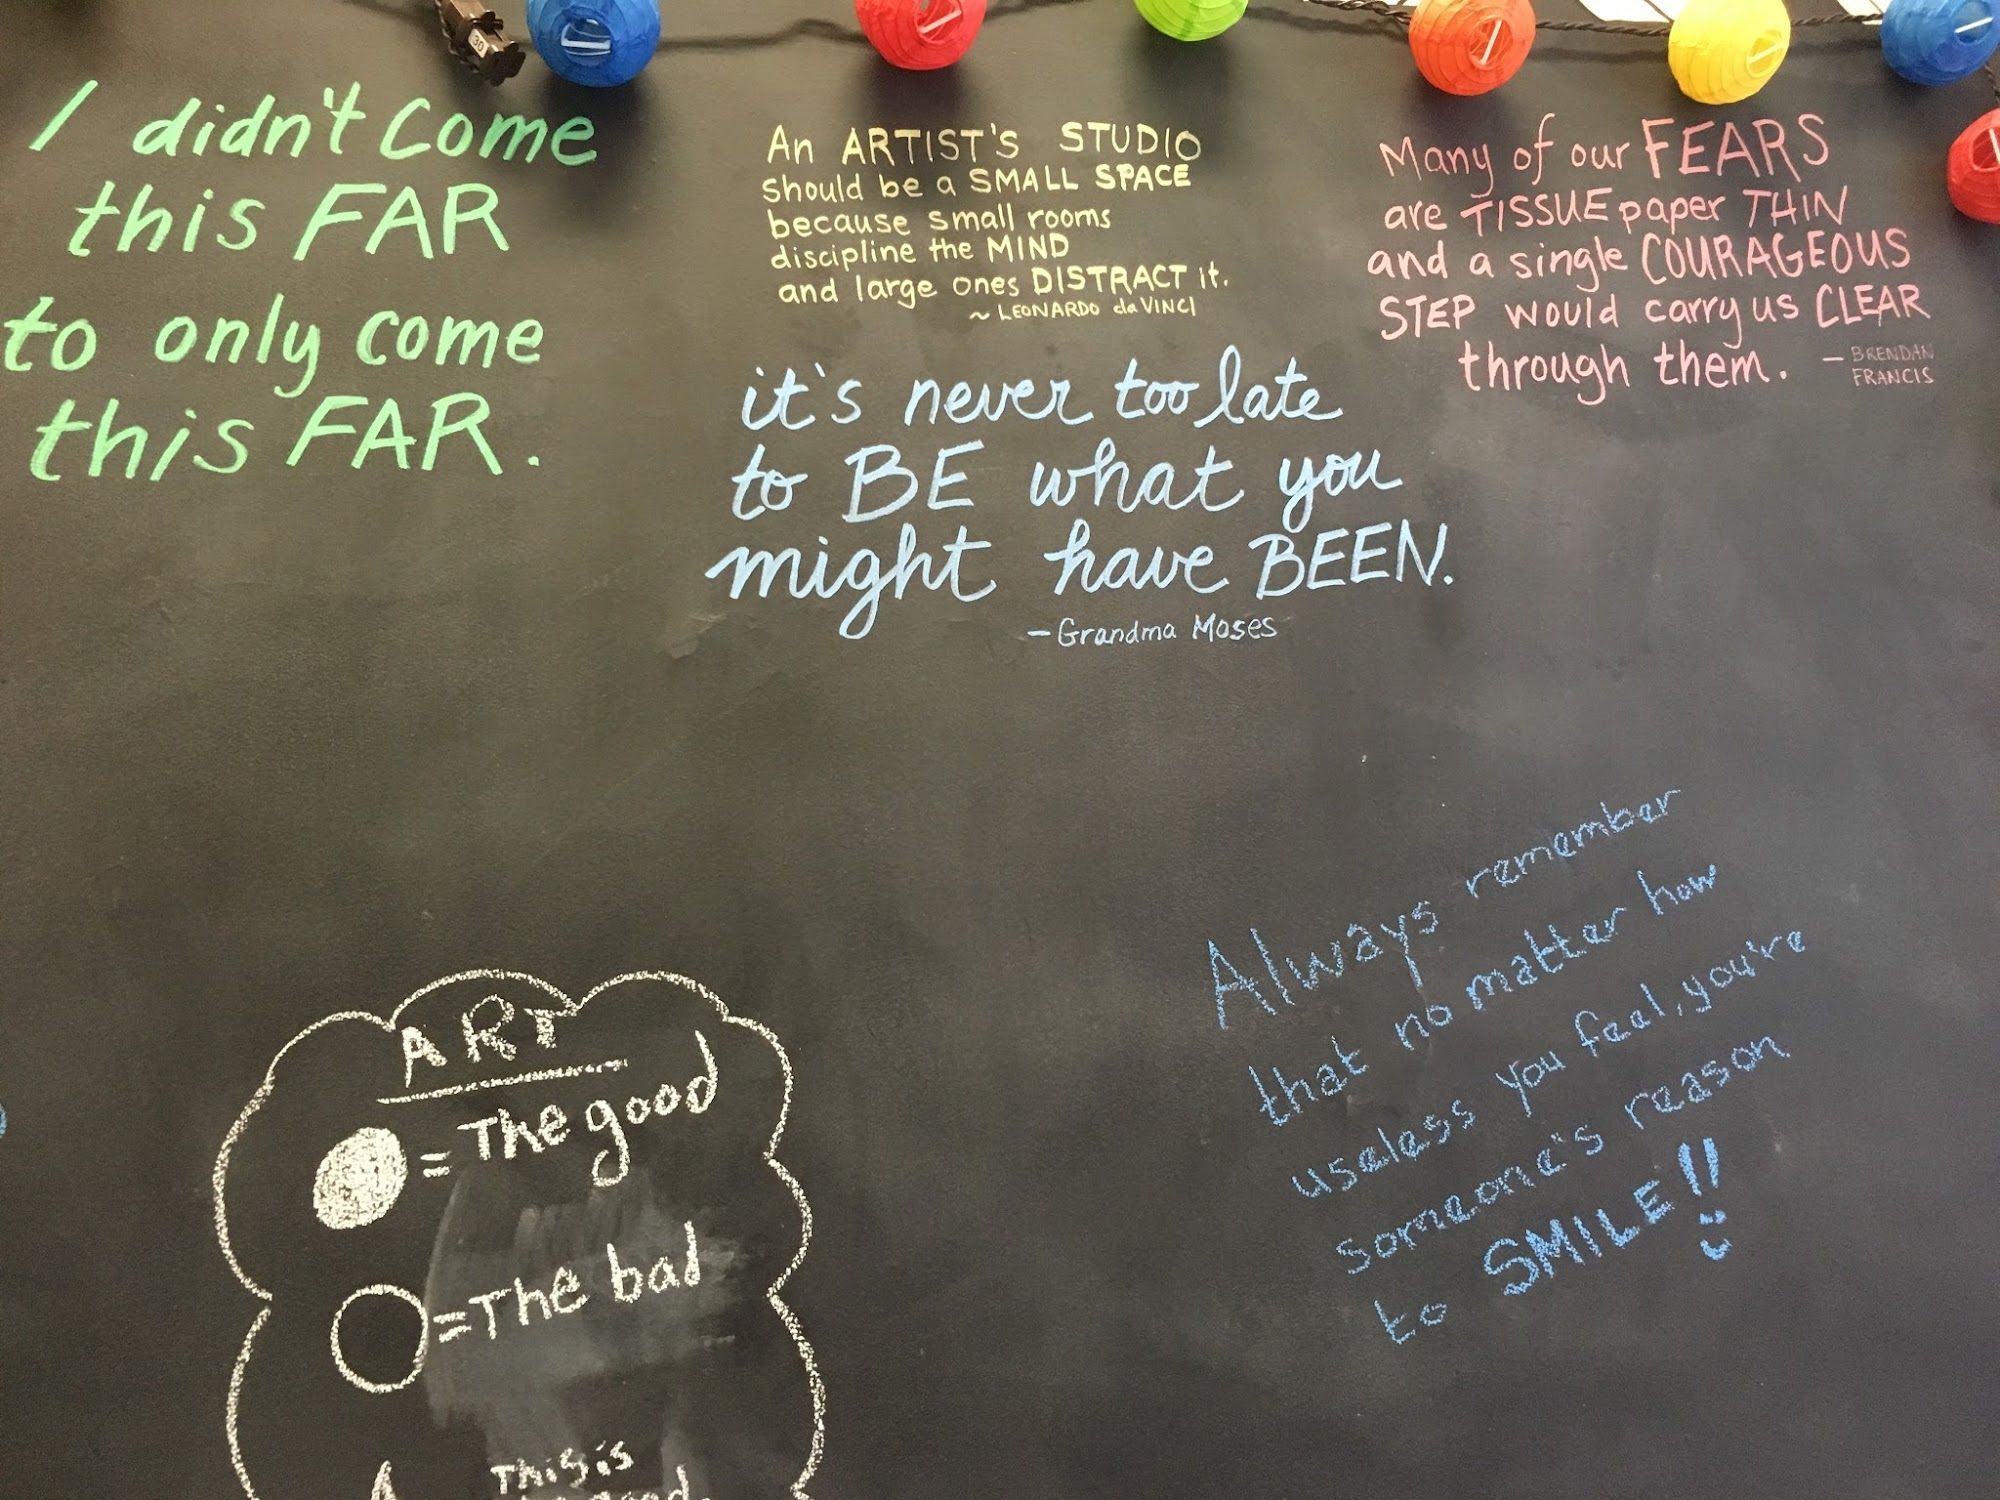 I didn't Come
this FAR
to only come
this FAR.
An ARTIST'S STUDIO
should be a SMALL SPACE
because small rooms
discipline the MIND
and large ones DISTRACT it.
~ LEONARDO da VINCI
Many of our FEARS
are TISSUE paper THIN
and a single COURAGEOUS
STEP would carry us CLEAR
through them. - BRENDAN
FRANCIS
it's never too late
to BE what you
might have BEEN.
- Grandma Moses
Always remember
that no matter how
useless you feel, you're
someone's reason
to SMILE!!
ART
= The good
= The bad
This is
30